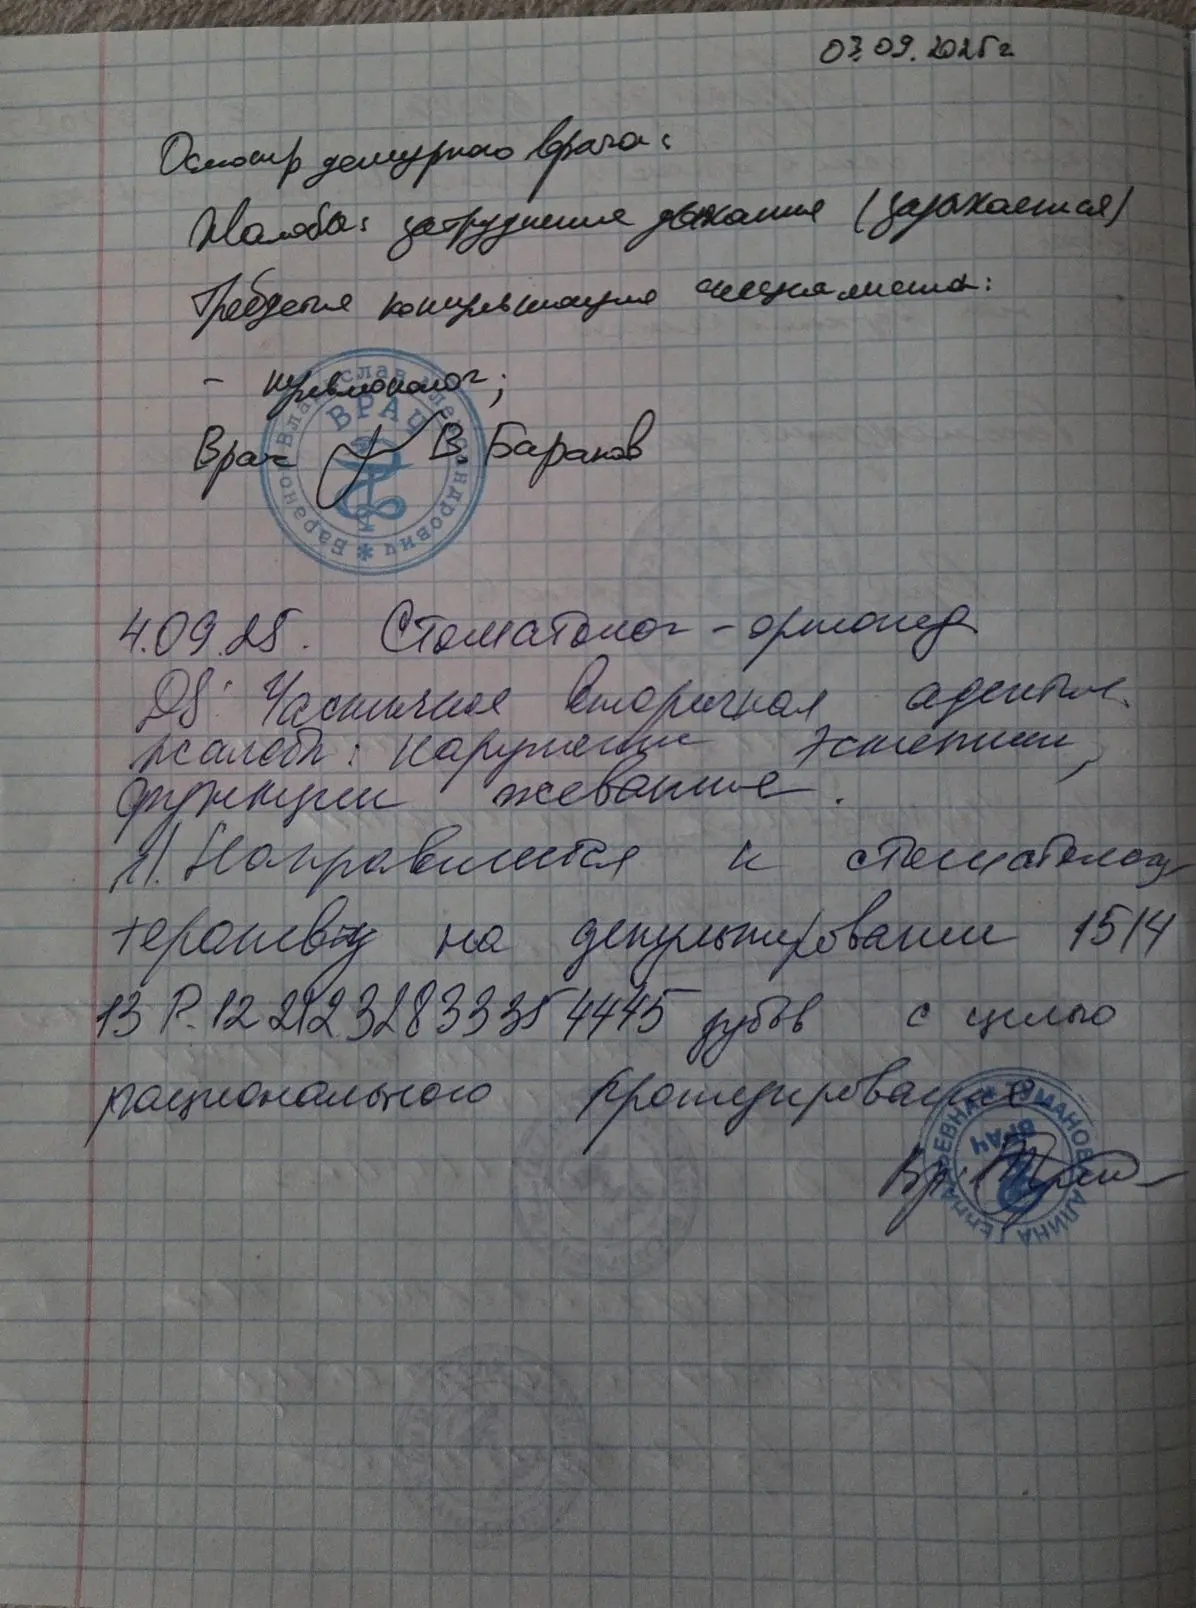 03.09.2025г
Осмотр дежурного врача:
Жалобы: затруднения дыхания (задыхается)
Требуется консультация специалиста:
- пульмонолог;
Врач В. Баранов
ВРАЧ
Баранов Владислав Александрович *
4.09.25. Стоматолог-ортопед
DS: Частичная вторичная адентия.
жалобы: нарушение эстетики,
функции жевания.
Направляется к стоматологу
терапевту на депульпирование 15 14
зубов с целью
рационального протезирования
Вр.
ВРАЧ
АЛИНА